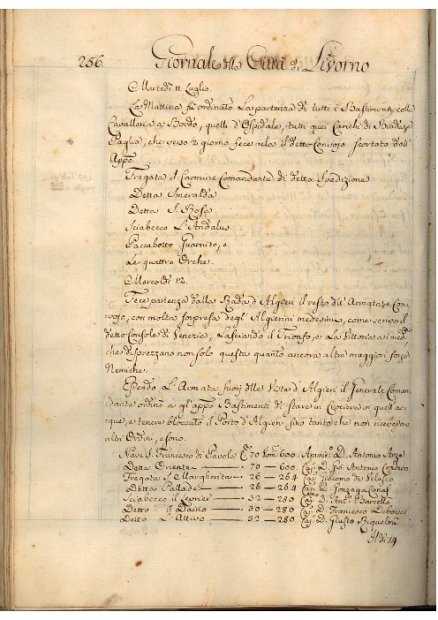 256 Giornale della Città di Livorno
Martedì 11. Luglio.
La Mattina fù ordinato la partenza di tutti i Bastimenti colla
Cavalleria a Bordo, quelli d'Ospidale, tutti quei Carichi di
Paglia, che verso giorno fece vela il detto Convojo scortato dall'
Appo.
Fregata il Carmine Comandante di detta Spedizione
Detta Smeralda
Detta S. Rosa
Sciabecco L'Andalus
Paccabotto Guarnito, e
Le quattro Orche.
Mercordì 12.
Fece partenza dalla Rada d'Algieri il resto dell'Armata, e Con-
vojo, con molta sorpresa degl'Algierini medesimi, come scrive il
detto Console di Venezia, lasciando il Trionfo, e la Vittoria
che disprezzano non solo questa quanto ancora altre maggiori forze
Nemiche.
Essendo L'Armata fuori della Vista d'Algieri il Generale Coman-
dante ordinò a gl'appo. Bastimenti di stare in Crociera in quell'ac-
que, e tenere bloccato il Porto d'Algieri sino tanto che non ricevessero
altri Ordini, e sono.
Nave S. Francesco di Pavola C. 70 Uom. 600. D. Antonio
Detta Oriente 70 - 600. Cap. D. Gio. Antonio Cordero
Fregata S. Margherita 26 - 264 Cap. Giacomo de Velasco
Detta Pallade 26 - 264 Cap. D. Gonzaga
Sciabecco il 32 - 280 Cap. D. Ant. Barcello
Detto il 30 - 280 Cap. D. Francesco
Detto L'Attivo 32 - 280 Cap. D.